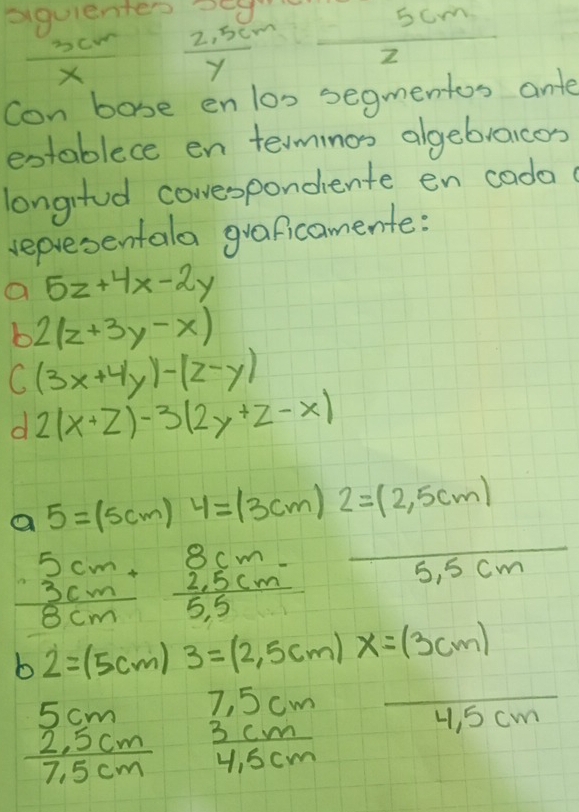 siguientes seg
3cm 2,5cm 5cm
x y z
Con base en los segmentos ante
establece en terminos algebraicos
longitud correspondiente en cada
representala graficamente:
a 5z+4x-2y
b 2(z+3y-x)
C (3x+4y)-(z-y)
d 2(x+z)-3(2y+z-x)
a 5=(5cm) 4=(3cm) 2=(2,5cm)
5cm + 8cm -
3cm 2,5cm 5,5 cm
8cm 5,5
b 2=(5cm) 3=(2,5cm) x=(3cm)
5cm 7,5cm
2,5cm 3cm 4,5 cm
7,5cm 4,5cm